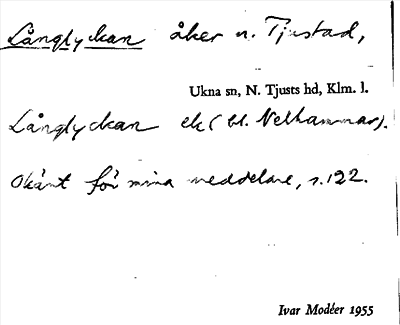 Långlyckan åker u. Tjustad,
Ukna sn, N. Tjusts hd, Klm. l.
Långlyckan ek (bl. Nelhammar).
Okänt för mina meddelare, s. 122.
Ivar Modéer 1955